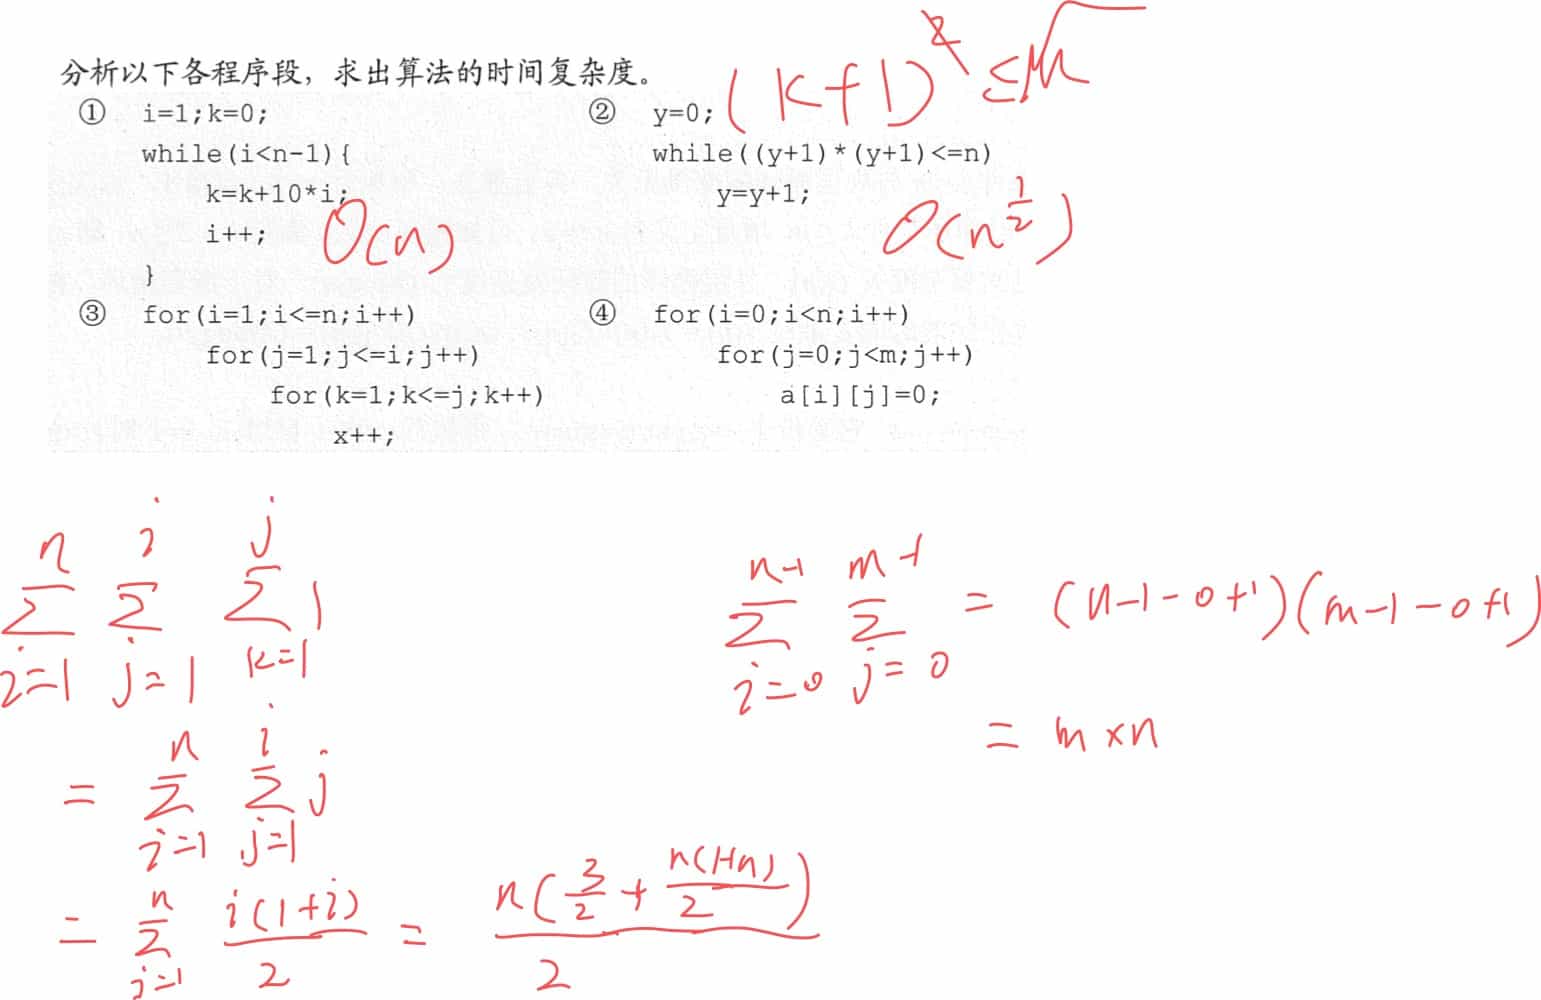 分析以下各程序段，求出算法的时间复杂度。
(k+1)² ≤ √n
① i=1;k=0;
while(i<n-1){
k=k+10*i;
i++;
}
O(n)
② y=0;
while((y+1)*(y+1)<=n)
y=y+1;
O(n^{1/2})
③ for(i=1;i<=n;i++)
for(j=1;j<=i;j++)
for(k=1;k<=j;k++)
x++;
④ for(i=0;i<n;i++)
for(j=0;j<m;j++)
a[i][j]=0;
∑_{i=1}^{n} ∑_{j=1}^{i} ∑_{k=1}^{j} 1
= ∑_{i=1}^{n} ∑_{j=1}^{i} j
= ∑_{i=1}^{n} i(1+i)/2 = n(3/2 + n(1+n)/2)/2
∑_{i=0}^{n-1} ∑_{j=0}^{m-1} = (n-1-0+1)(m-1-0+1)
= m×n